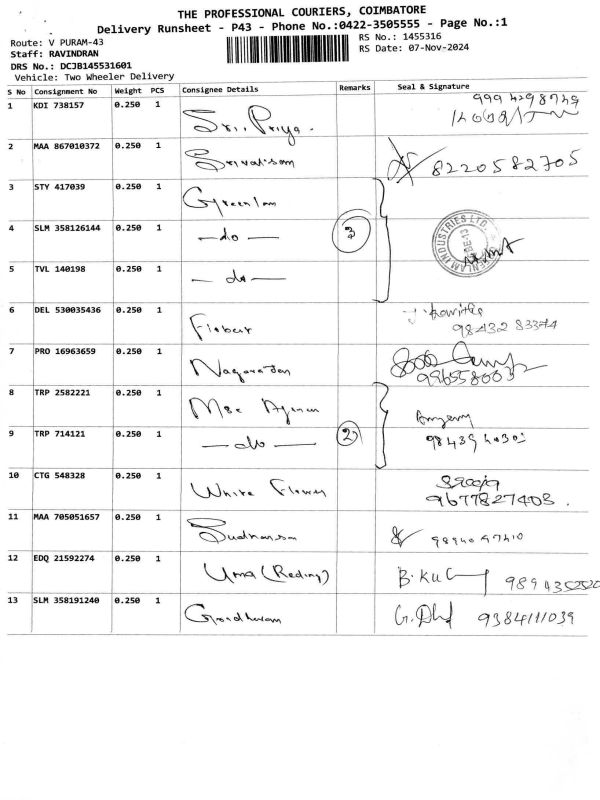 THE PROFESSIONAL COURIERS, COIMBATORE
Delivery Runsheet - P43 - Phone No.:0422-3505555 - Page No.:1
Route: V PURAM-43
RS No.: 1455316
Staff: RAVINDRAN
RS Date: 07-Nov-2024
DRS No.: DCJB145531601
Vehicle: Two Wheeler Delivery
S No Consignment No Weight PCS Consignee Details Remarks Seal & Signature
1 KDI 738157 0.250 1 Sri. Priya.
2 MAA 867010372 0.250 1 Srivatsan 8220582705
3 STY 417039 0.250 1 Greenlam
4 SLM 358126144 0.250 1 —do— 3
5 TVL 140198 0.250 1 —do—
6 DEL 530035436 0.250 1 98432 83374
7 PRO 16963659 0.250 1
8 TRP 2582221 0.250 1
9 TRP 714121 0.250 1 —do— 2
10 CTG 548328 0.250 1 White Flower 9677827403.
11 MAA 705051657 0.250 1
12 EDQ 21592274 0.250 1 Uma (Reding)
13 SLM 358191240 0.250 1 9384111039